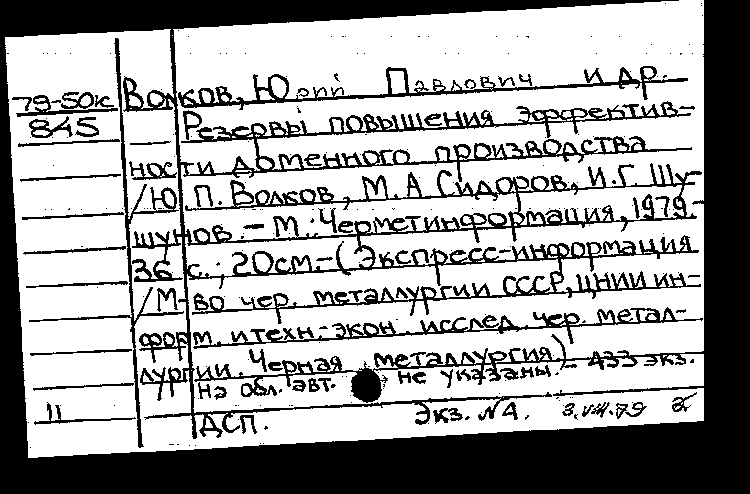 79-50к Волков, Юрий Павлович и др.
845 Резервы повышения эффектив-
ности доменного производства
/Ю.П. Волков, М.А Сидоров, И.Г. Шу-
шунов. - М.: Черметинформация, 1979.-
36 с.; 20см.- (Экспресс-информация
/М-во чер. металлургии СССР, ЦНИИ ин-
форм. и техн.-экон. исслед. чер. метал-
лургии. Черная металлургия)
На обл. авт. не указаны. - 433 экз.
11 ДСП. Экз. №1. 3.VIII.79